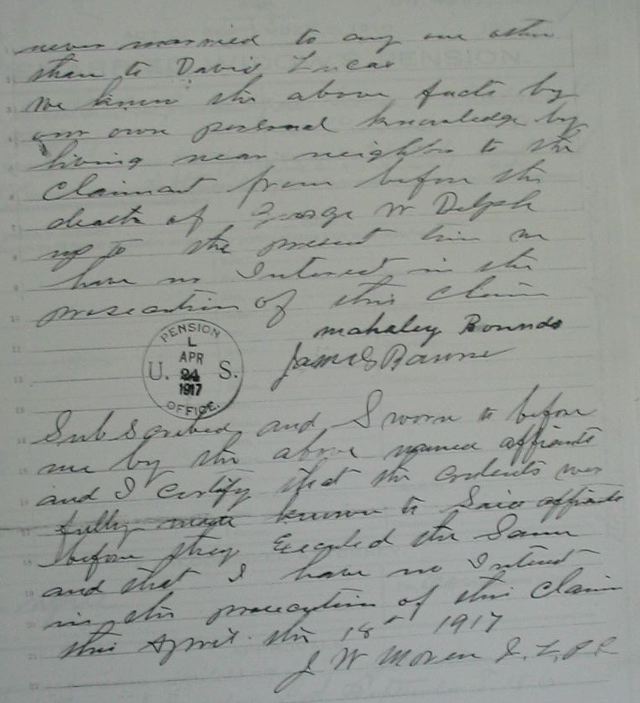 never married to any one other
than to David Lucas
We know the above facts by
our own personal knowledge by
living near neighbor to the
Claimant from before the
death of George W Delph
up to the present time we
have no Interest in the
prosecution of this Claim
mahaley Bounds
James
PENSION
L
APR
24
1917
U. S.
OFFICE.
Subscribed and Sworn to before
me by the above named affiants
and I Certify that the contents was
fully made known to Said affiants
before they Executed the Same
and that I have no Interest
in the prosecution of this Claim
this April the 18th 1917
J W